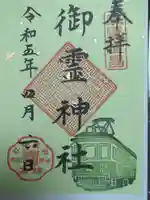 奉拝
御霊神社
令和五年四月六日